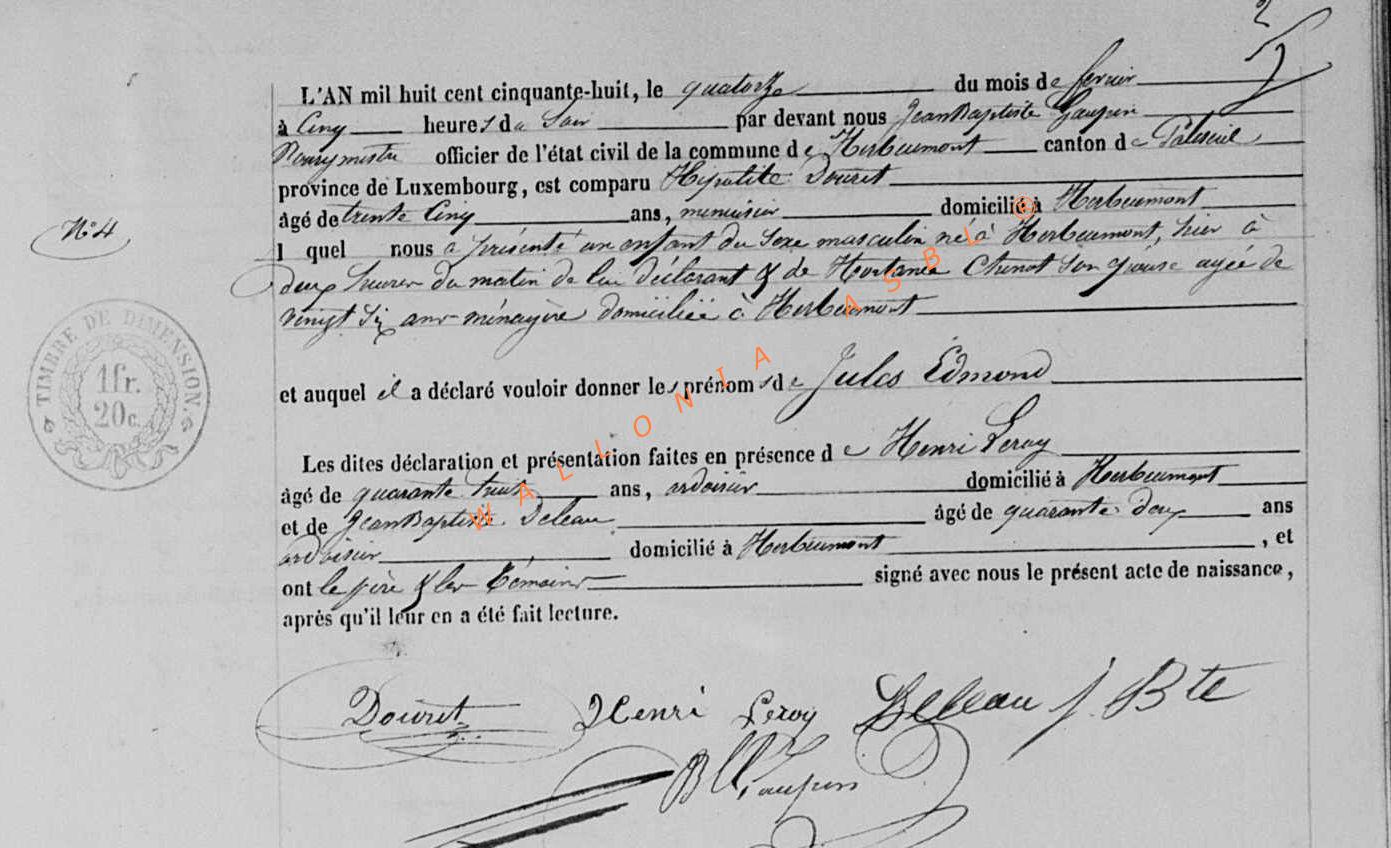 2
L'AN mil huit cent cinquante-huit, le quatorze du mois de fevrier
à Cinq heures du Soir par devant nous Jean Baptiste
Bourgmestre officier de l'état civil de la commune de Herbeumont canton de Paliseul
province de Luxembourg, est comparu Hipolite Douret
âgé de trente Cinq ans, menuisier domicilié à Herbeumont
N° 4
l quel nous a présenté un enfant du Sexe masculin né à Herbeumont, hier à
deux heures du matin de lui déclarant & de Hortance Chenot Son épouse agée de
vingt Six ans ménagère domiciliée à Herbeumont
TIMBRE DE DIMENSION.
1 fr.
20 c.
et auquel il a déclaré vouloir donner les prénoms de Jules Edmond
Les dites déclaration et présentation faites en présence de Henri Leroy
âgé de quarante trois ans, ardoisier domicilié à Herbeumont
et de Jean Baptiste Deleau âgé de quarante deux ans
ardoisier domicilié à Herbeumont, et
ont le père & les témoins signé avec nous le présent acte de naissance,
après qu'il leur en a été fait lecture.
Douret Henri Leroy Deleau j. Bte
WALLONIA ASBL ®